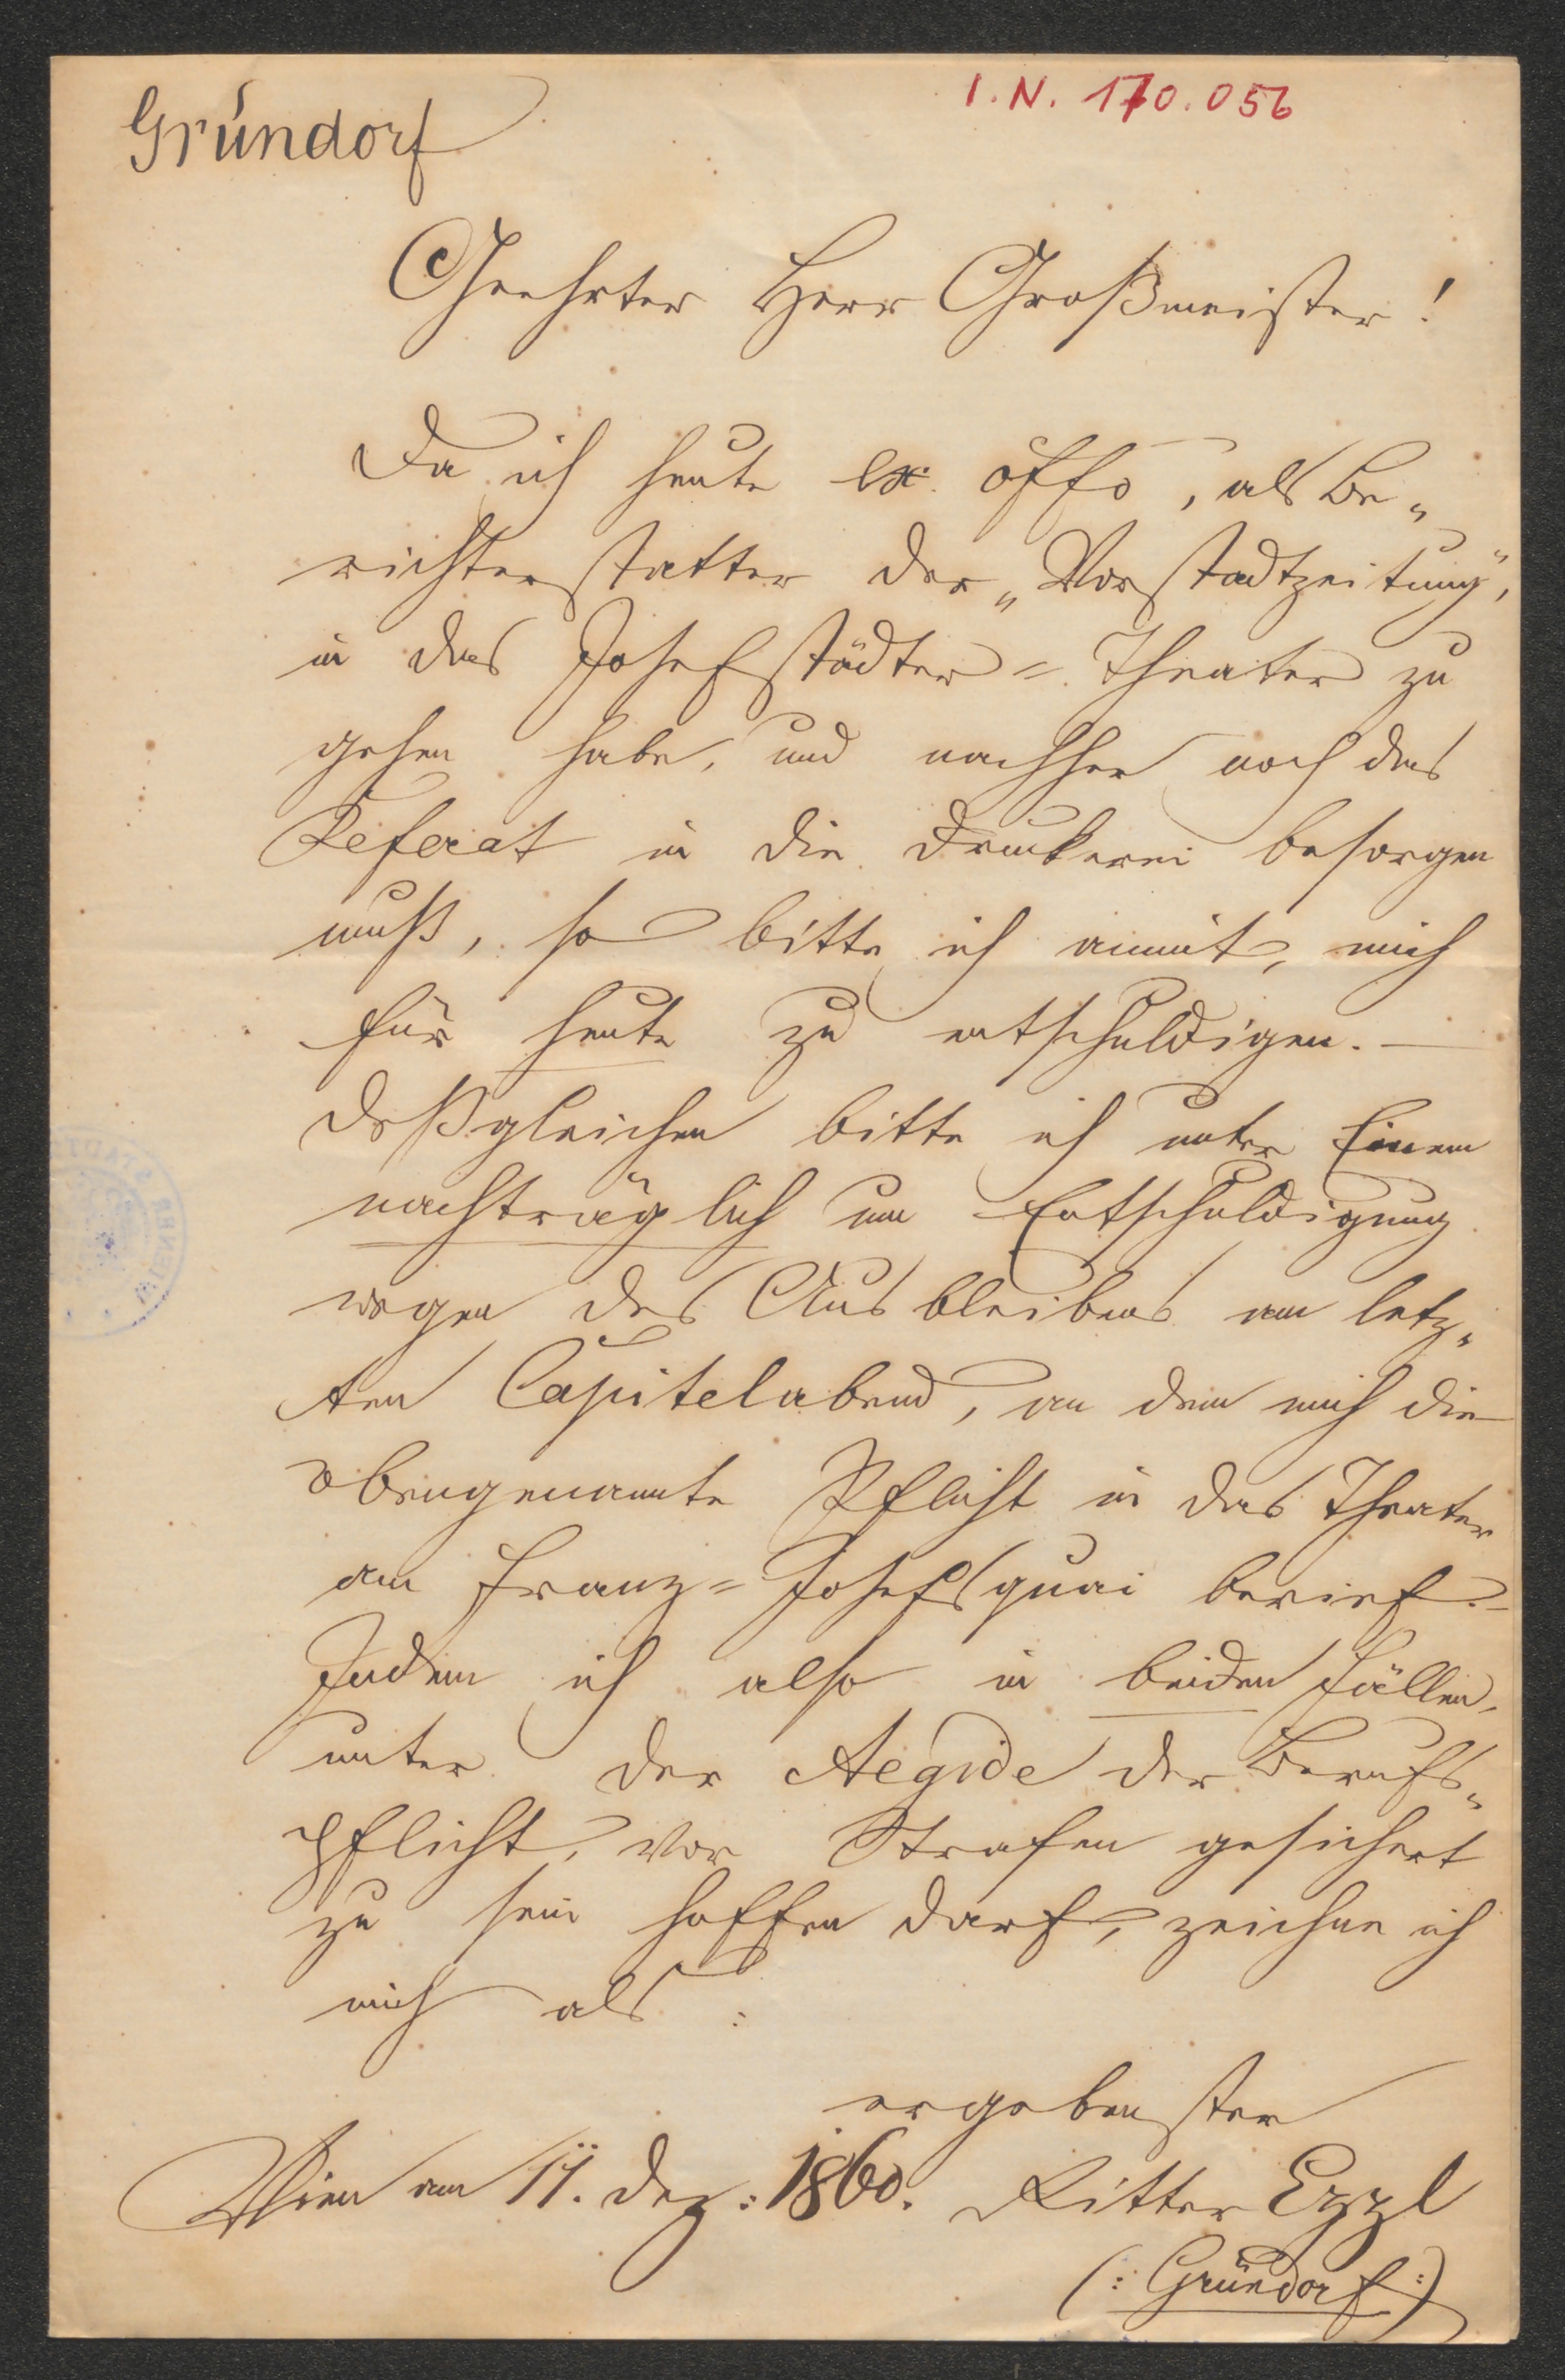 Gründorf
I. N. 170.056
Geehrter Herr Großmeister!
Da ich heute ex offo, als Be„
richterstatter der „Vorstadtzeitung",
in das Josefstädter=Theater zu
gehen habe, und nachher noch das
Referat in die Druckerei besorgen
muß, so bitte ich anmit, mich
für heute zu entschuldigen. —
Deßgleichen bitte ich unter Einem
nachträglich um Entschuldigung
wegen des Ausbleibens am letz„
ten Capitelabend, an dem mich die
obengenannte Pflicht in das Theater
am Franz=Josefsquai berief. –
Indem ich also in beiden Fällen,
unter der Aegide der Berufs„
pflicht, vor Strafen gesichert
zu sein hoffen darf, zeichne ich
mich als:
ergebenster
Wien am 11. Dez: 1860. Ritter Ezzl
(: Gründorf :)